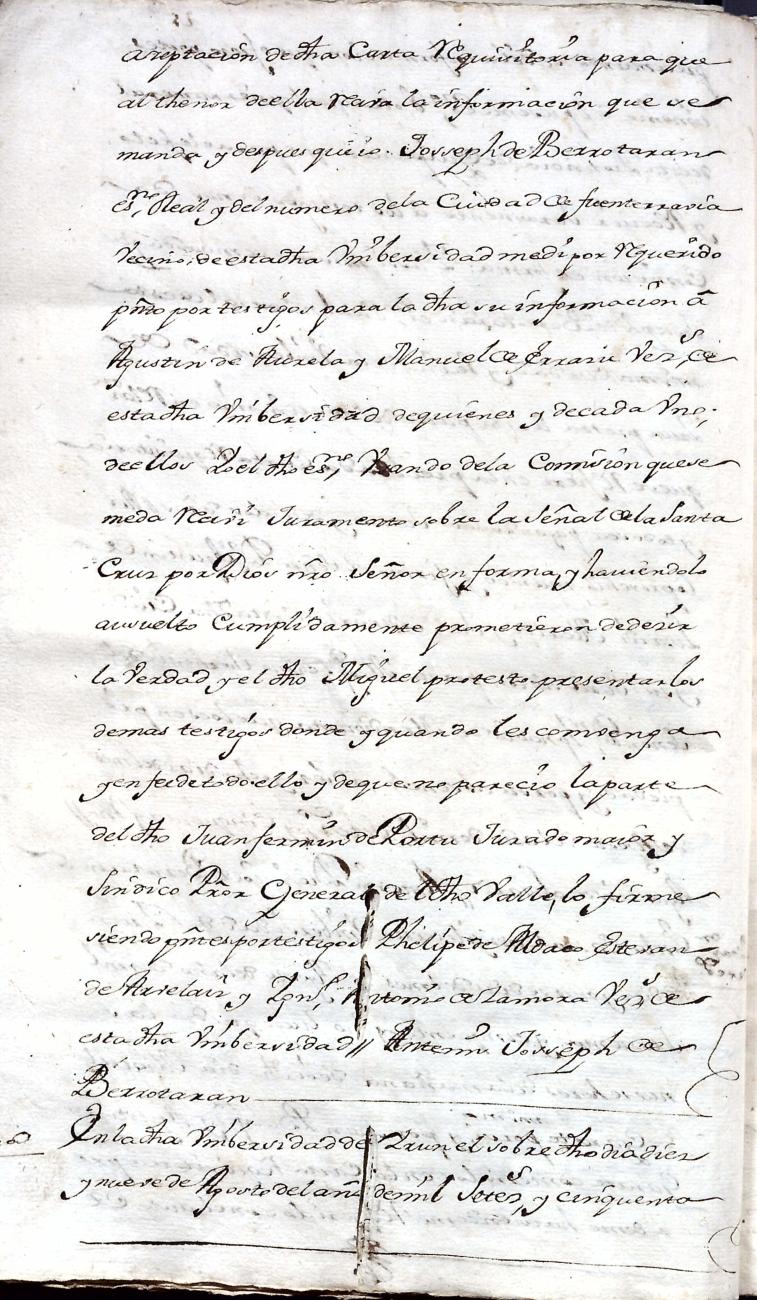 azeptación de dha Carta Requisitoria para que
al thenor de ella reciva la información que se
manda, y despues que io Josseph de Berrotaran
esno. Real y del numero de la Ciudad de fuenterravia
vecino de esta dha Vnibersidad me di por requerido
pnto por testigos para la dha su información â
Agustin de Aurela y Manuel de Errazu vezs. de
esta dha Vnibersidad de quienes y de cada Vno
de ellos Yo el dho esno. Vsando de la Comisión que se
me da reciví Juramento sobre la Señal de la Santa
Cruz por Dios nro Señor en forma, y haviendolo
ausuelto Cumplidamente prometieron de dezir
la Verdad, y el dho Miguel protesto presentar los
demas testigos donde y quando les combenga
y en fee de todo ello y de que no parecio la parte
del dho Juan fermin de Portu Jurado maior y
Sindico Pror General del dho Valle, lo firme
siendo pntes por testigos Phelipe de Aldaco Esteran
de Arrelaiz y Antonio de Zamora Vezs. de
esta dha Vnibersidad // Antemi Josseph de
Berrotaran
En la dha Vnibersidad de Yrun el sobre dho dia diez
y nueve de Agosto del año de mil Setezs. y cinquenta